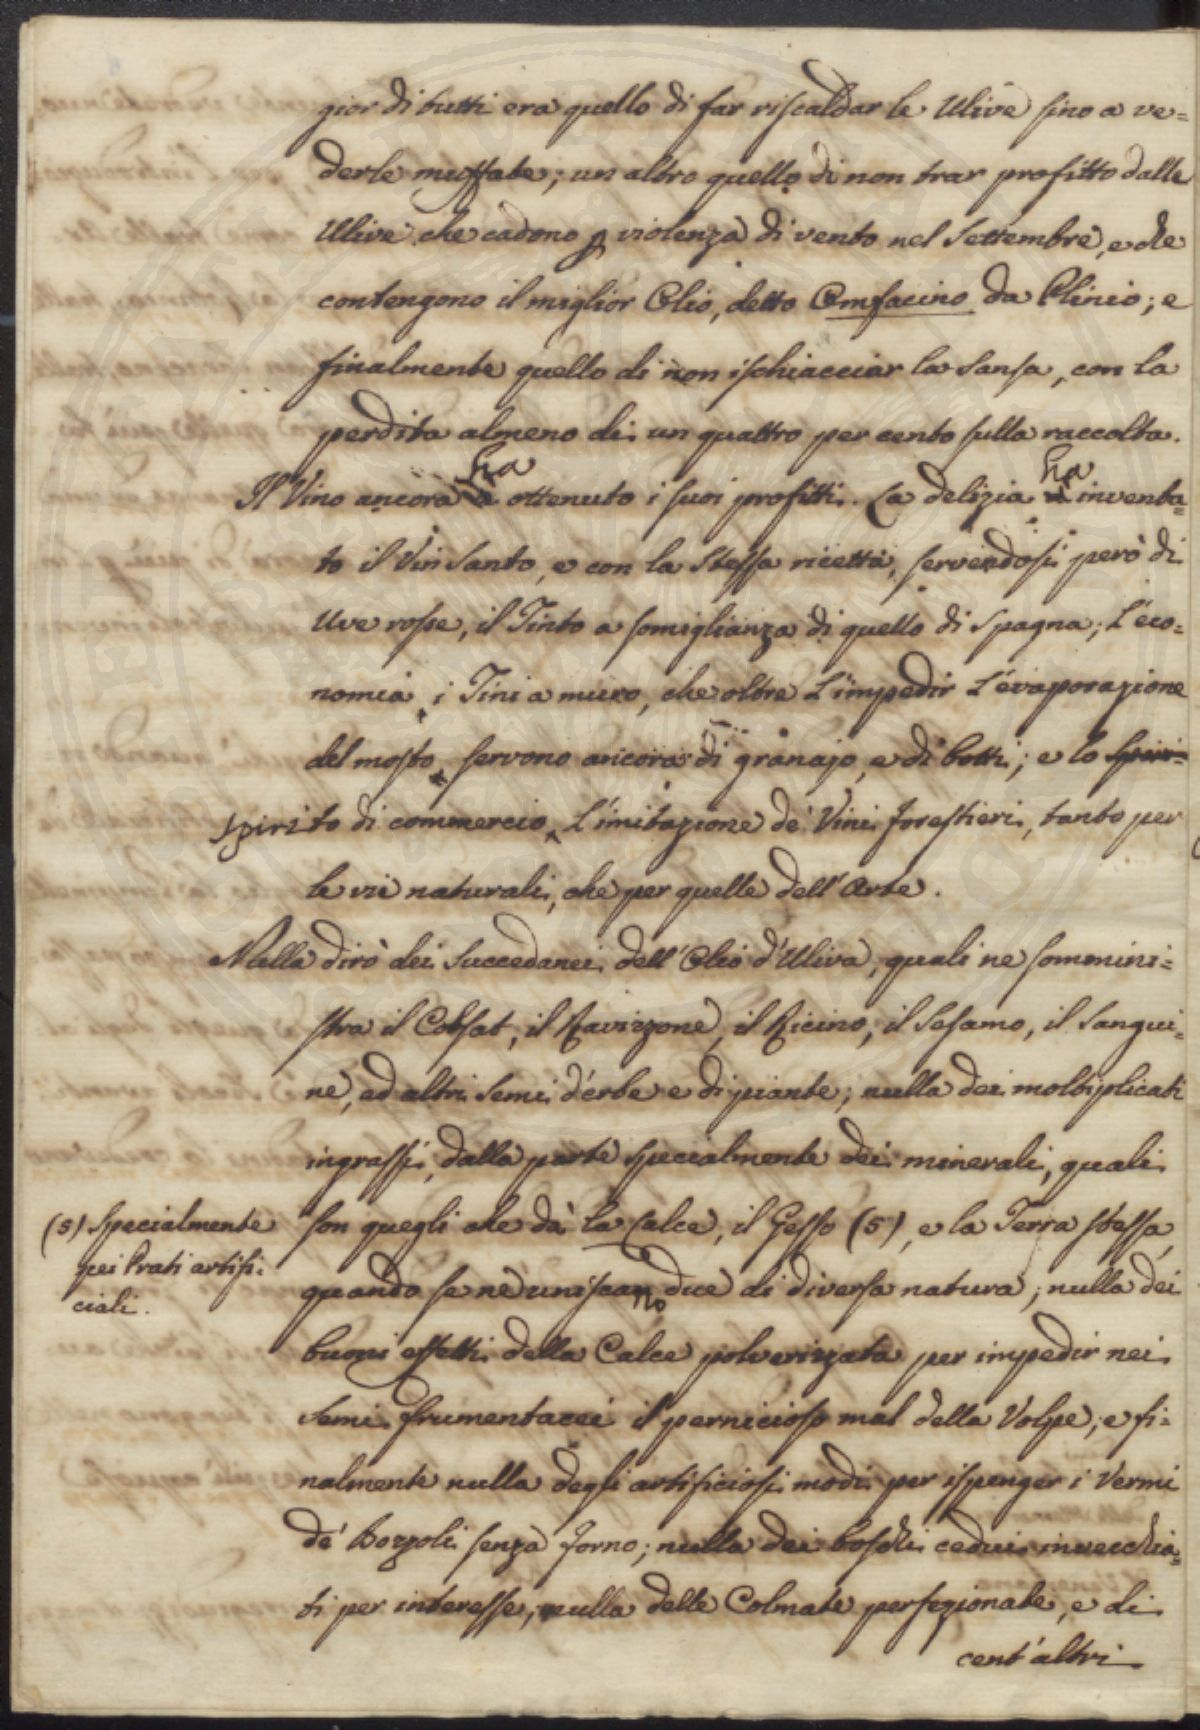 gior di tutti era quello di far riscaldar le Ulive sino a ve=
derle muffate; un altro quello di non trar profitto dalle
Ulive che cadono p violenza di vento nel Settembre, e che
contengono il miglior Olio, detto Omfacino da Plinio; e
finalmente quello di non ischiacciar la Sansa, con la
perdita almeno di un quattro per cento sulla raccolta.
Il Vino ancora ha ottenuto i suoi profitti. La delizia ha inventa=
to il Vin Santo, e con la stessa ricetta, servendosi però di
Uve rosse, il Tinto a somiglianza di quello di Spagna; L'eco=
nomia, i Tini a muro, che oltre L'impedir L'evaporazione
del mosto, servono ancora di granajo, e di botti; e lo Spiri=
spirito di commercio, L'imitazione de' Vini forestieri, tanto per
le vie naturali, che per quelle dell'Arte.
Nulla dirò dei Succedanei dell'Olio d'Uliva, quali ne sommini=
stra il Colsat, il Ravizzone, il Ricino, il Sesamo, il Sangui=
ne, ed altri Semi d'erbe e di piante; nulla dei moltiplicati
ingrassi, dalla parte specialmente dei minerali, quali
(5) Specialmente
pei Prati artifi=
ciali.
son quegli che dà la Calce, il Gesso (5), e la Terra stessa,
quando se ne uniscano due di diversa natura; nulla dei
buoni effetti della Calce polverizzata per impedir nei
Semi frumentacei il pernicioso mal della Volpe; e fi=
nalmente nulla degli artificiosi modi per ispenger i Vermi
de' Bozzoli senza forno; nulla dei boschi cedui invecchia=
ti per interesse; nulla delle Colmate perfezionate, e di
cent'altri